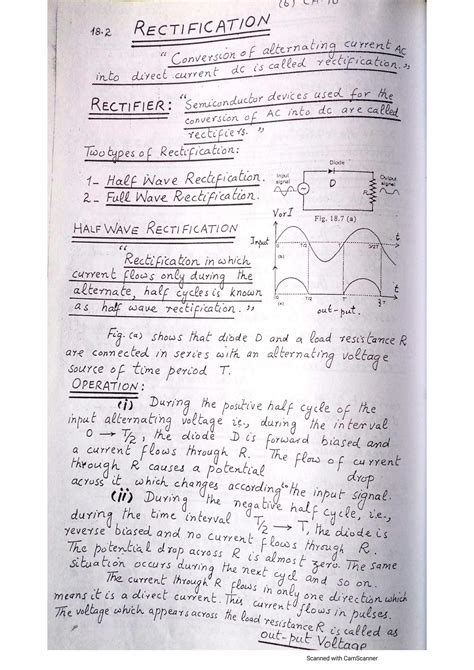 (b) CH-18
18.2 RECTIFICATION
"Conversion of alternating current AC
into direct current dc is called rectification."
RECTIFIER: "Semiconductor devices used for the
conversion of AC into dc are called
rectifiers."
Two types of Rectification:
1_ Half Wave Rectification.
2_ Full Wave Rectification.
Diode
D
Input
signal
R
Output
signal
Fig. 18.7 (a)
HALF WAVE RECTIFICATION
"Rectification in which
current flows only during the
alternate, half cycles is known
as half wave rectification."
V or I
Input
t
0 T/2 T 3/2T
(b)
0 T/2 T t
(c)
out-put.
Fig. (a) shows that diode D and a load resistance R
are connected in series with an alternating voltage
source of time period T.
OPERATION:
(i) During the positive half cycle of the
input alternating voltage i.e., during the interval
0 → T/2, the diode D is forward biased and
a current flows through R. The flow of current
through R causes a potential drop
across it which changes according to the input signal.
(ii) During the negative half cycle, i.e.,
during the time interval T/2 → T, the diode is
reverse biased and no current flows through R.
The potential drop across R is almost zero. The same
situation occurs during the next cycl and so on.
The current through R flows in only one direction which
means it is a direct current. This current flows in pulses.
The voltage which appears across the load resistance R is called as
out-put Voltage
Scanned with CamScanner